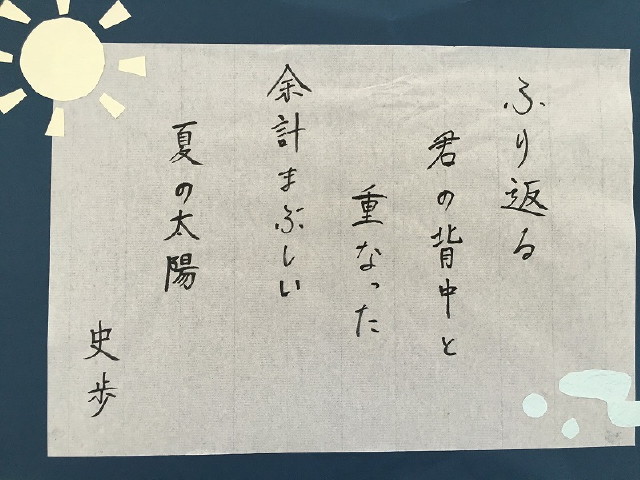 ふり返る
君の背中と
重なった
余計まぶしい
夏の太陽
史歩